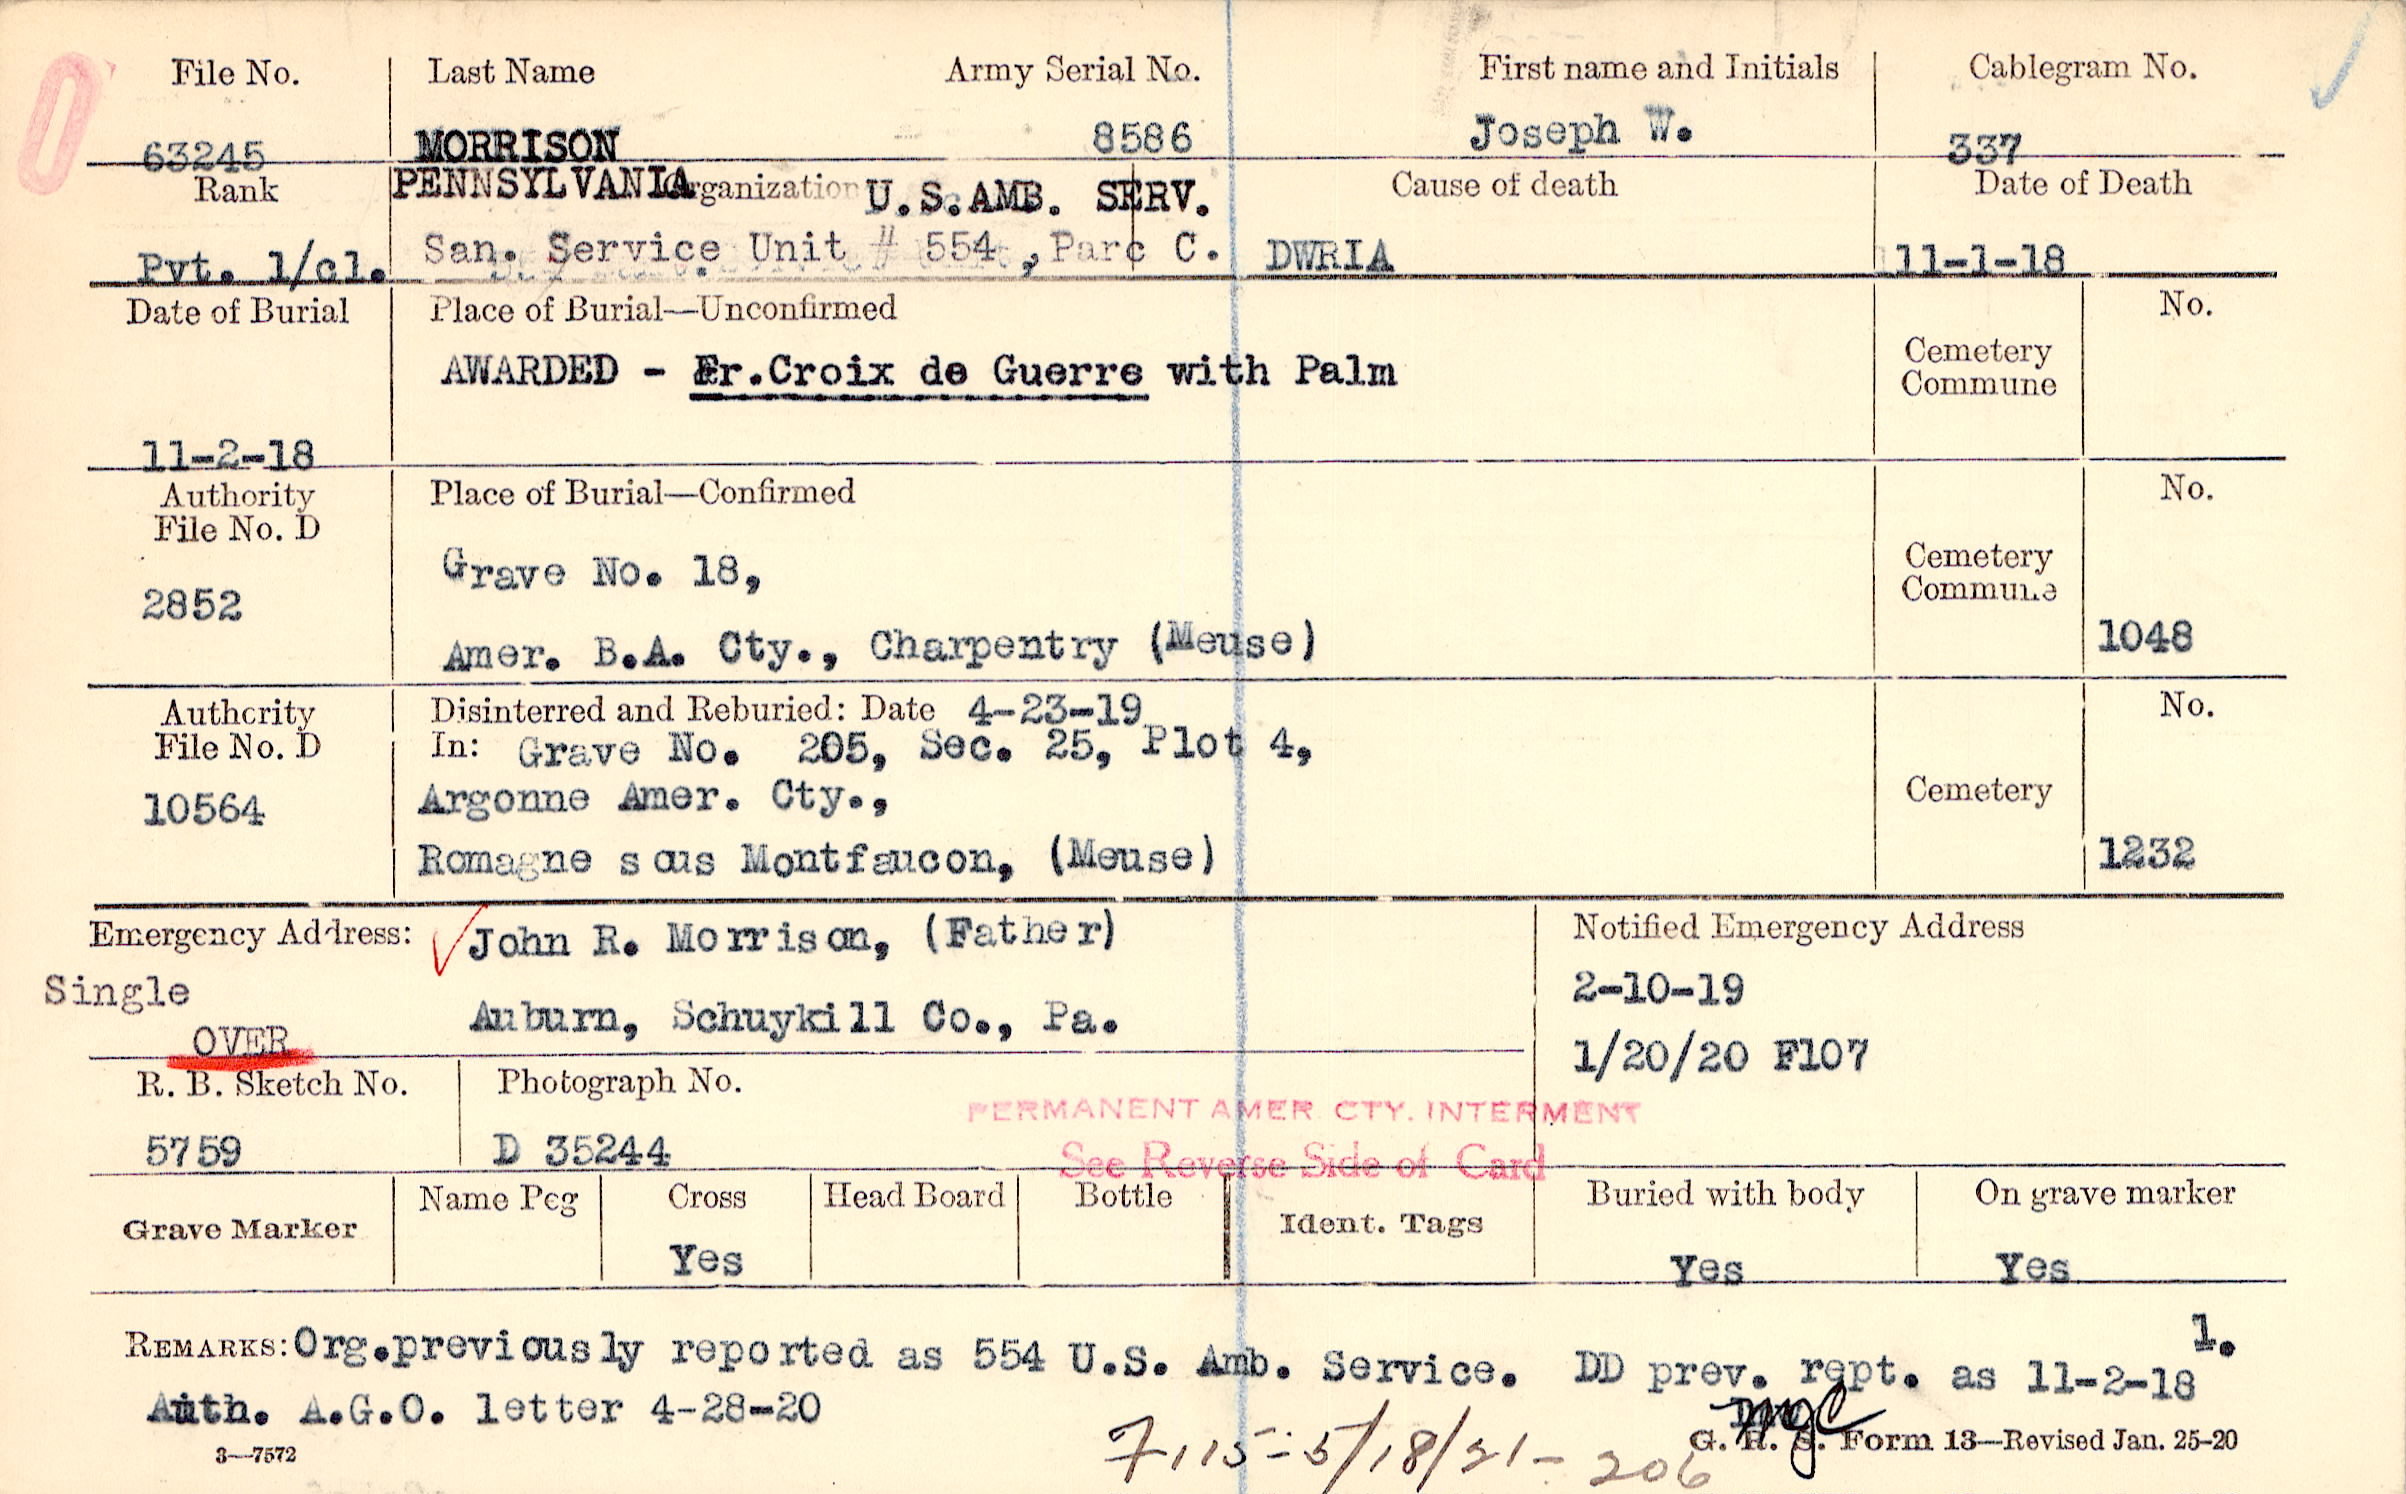 File No. Last Name Army Serial No. First name and Initials Cablegram No.
63245 MORRISON 8586 Joseph W. 337
Rank PENNSYLVANIA Organization U.S.AMB. SERV. Cause of death Date of Death
Pvt. 1/cl. San. Service Unit # 554, Parc C. DWRIA 11-1-18
Date of Burial Place of Burial—Unconfirmed No.
Cemetery
Commune
AWARDED - Fr.Croix de Guerre with Palm
11-2-18
Authority Place of Burial—Confirmed No.
File No. D
Cemetery
Commune
Grave No. 18,
2852
Amer. B.A. Cty., Charpentry (Meuse) 1048
Authority Disinterred and Reburied: Date 4-23-19 No.
File No. D In: Grave No. 205, Sec. 25, Plot 4,
10564 Argonne Amer. Cty., Cemetery
Romagne sous Montfaucon, (Meuse) 1232
Emergency Address: John R. Morrison, (Father) Notified Emergency Address
Single 2-10-19
Auburn, Schuykill Co., Pa.
OVER 1/20/20 F107
R. B. Sketch No. Photograph No.
PERMANENT AMER. CTY. INTERMENT
5759 D 35244 See Reverse Side of Card
Grave Marker Name Peg Cross Head Board Bottle Ident. Tags Buried with body On grave marker
Yes Yes Yes
REMARKS: Org.previously reported as 554 U.S. Amb. Service. DD prev. rept. as 11-2-18 1.
Auth. A.G.O. letter 4-28-20
mgc
3—7572 G. R. S. Form 13—Revised Jan. 25-20
7115-5/18/21-206